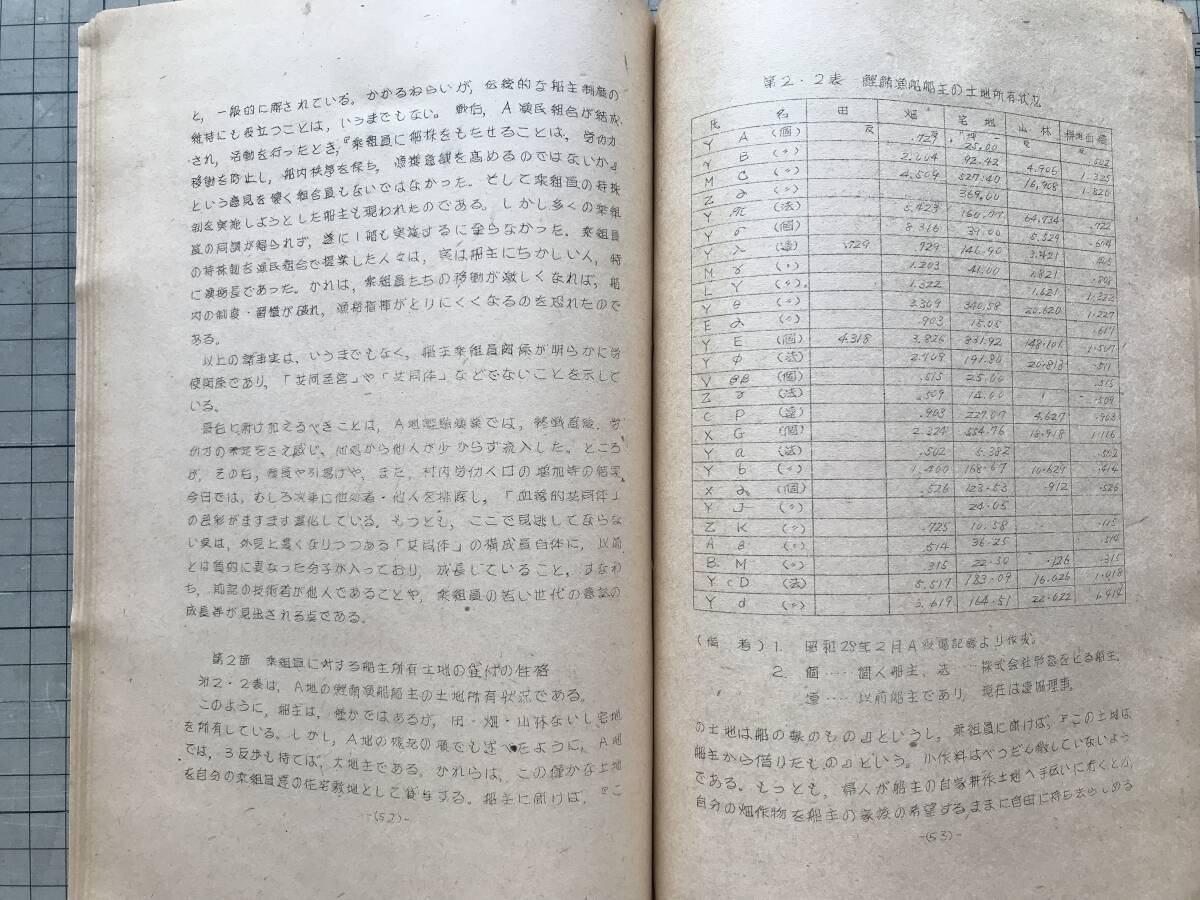 と，一般的に解されている。かかるねらいが，伝統的な船主制度の
維持にも役立つことは，いうまでもない。戦后，A漁民組合が結成
され，活動を行ったとき，『乗組員に船株をもたせることは，労仂力
移動を防止し，船内秩序を保ち，漁獲意欲を高めるのではないか』
という意見を懐く組合員もないではなかった。そして乗組員の持株
制を実施しようとした船主も現われたのである。しかし多くの乗組
員の同調が得られず，遂に1船も実施するに至らなかった。乗組員
の持株制を漁民組合で提案した人々は，実は船主にちかしい人，特
に漁撈長であった。かれは，乗組員たちの移動が激しくなれば，船
内の制度・習慣が破れ，漁撈指揮がとりにくくなるのを恐れたので
ある。
以上の諸事実は，いうまでもなく，船主乗組員関係が明らかに労
使関係であり，「共同経営」や「共同体」などでないことを示して
いる。
最后に附け加えるべきことは，A地鰹鮪漁業では，終戦直後，労
仂力の不足をさえ感じ，他処から他人が少からず流入した。ところ
が，その后，復員や引揚げや，また，村内労仂人口の増加等の結果，
今日では，むしろ次第に他処者・他人を排除し，「血縁的共同体」
の色彩がますます濃化している。もっとも，ここで見逃してならな
い点は，外見上濃くなりつつある「共同体」の構成員自体に，以前
とは質的に異なった分子が入っており，成長していること，すなわ
ち，前記の技術者が他人であることや，乗組員の若い世代の意識の
成長等が見出される点である。
第2節　乗組員に対する船主所有土地の貸付の性格
第2・2表は，A地の鰹鮪漁船船主の土地所有状況である。
このように，船主は，僅かではあるが，田・畑・山林ないし宅地
を所有している。しかし，A地の概況の項でも述べたように，A地
では，3反歩も持てば，大地主である。かれらは，この僅かな土地
を自分の乗組員達の住宅敷地として貸与する。船主に聞けば，『こ
-(52)-
第2・2表　鰹鮪漁船船主の土地所有状況
氏　名　田　畑　宅地　山林　耕地面積
Y A (個) 反 .729 25.00 .502
Y B (〃) 2.004 92.42 4.906 1.325
M C (〃) 4.509 527.40 16,908 1.820
Z (〃) 369.00
Y π (法) 5.423 64,734 .722
Y σ (個) 8.316 39.00 5.529
Y λ (遠) .729 .729 146.90 3.421
M γ (〃) 1.203 41.00 1.821
L Y (〃) 1.322 1.621 1.322
Y θ (〃) 3.309 340.58 20.620 1.227
E (〃) .903 15.05 .617
Y E (個) 4.318 3.826 831.92 1.507
Y Φ (法) 2.709 191.80 20.818 .511
V (個) .515 25.00 .515
Z (法) .509 14.00 .509
C P (遠) .903 4.627 .903
X G (個) 2.224 554.76 18.918 1.166
Y a (法) .502 5.382 .502
Y b (〃) 1.400 168.67 10.629 .414
X (個) .526 123.53 .912 .526
Y J (〃) 24.05
Z K (〃) .725 10.58 .115
A θ (〃) .514 36.25 .514
B M (〃) .315 22.50 .126 .315
Y c D (法) 5.517 183.09 16.626 1.018
Y d (〃) 3.619 164.51 22.622 1.414
(備　考) 1. 昭和29年2月A役場記録より作成。
2. 個…… 個人船主，法　株式会社形態をとる船主，
…… 以前船主であり，現在は
の土地は船の家のもの』というし，乗組員に聞けば，『この土地は
船主から借りたもの』という。小作料はべつだん徴していないよう
である。もっとも，婦人が船主の自家耕作土地へ手伝いに行くとか，
自分の畑作物を船主の家族の希望するままに自由に持ち去らしめる
-(53)-